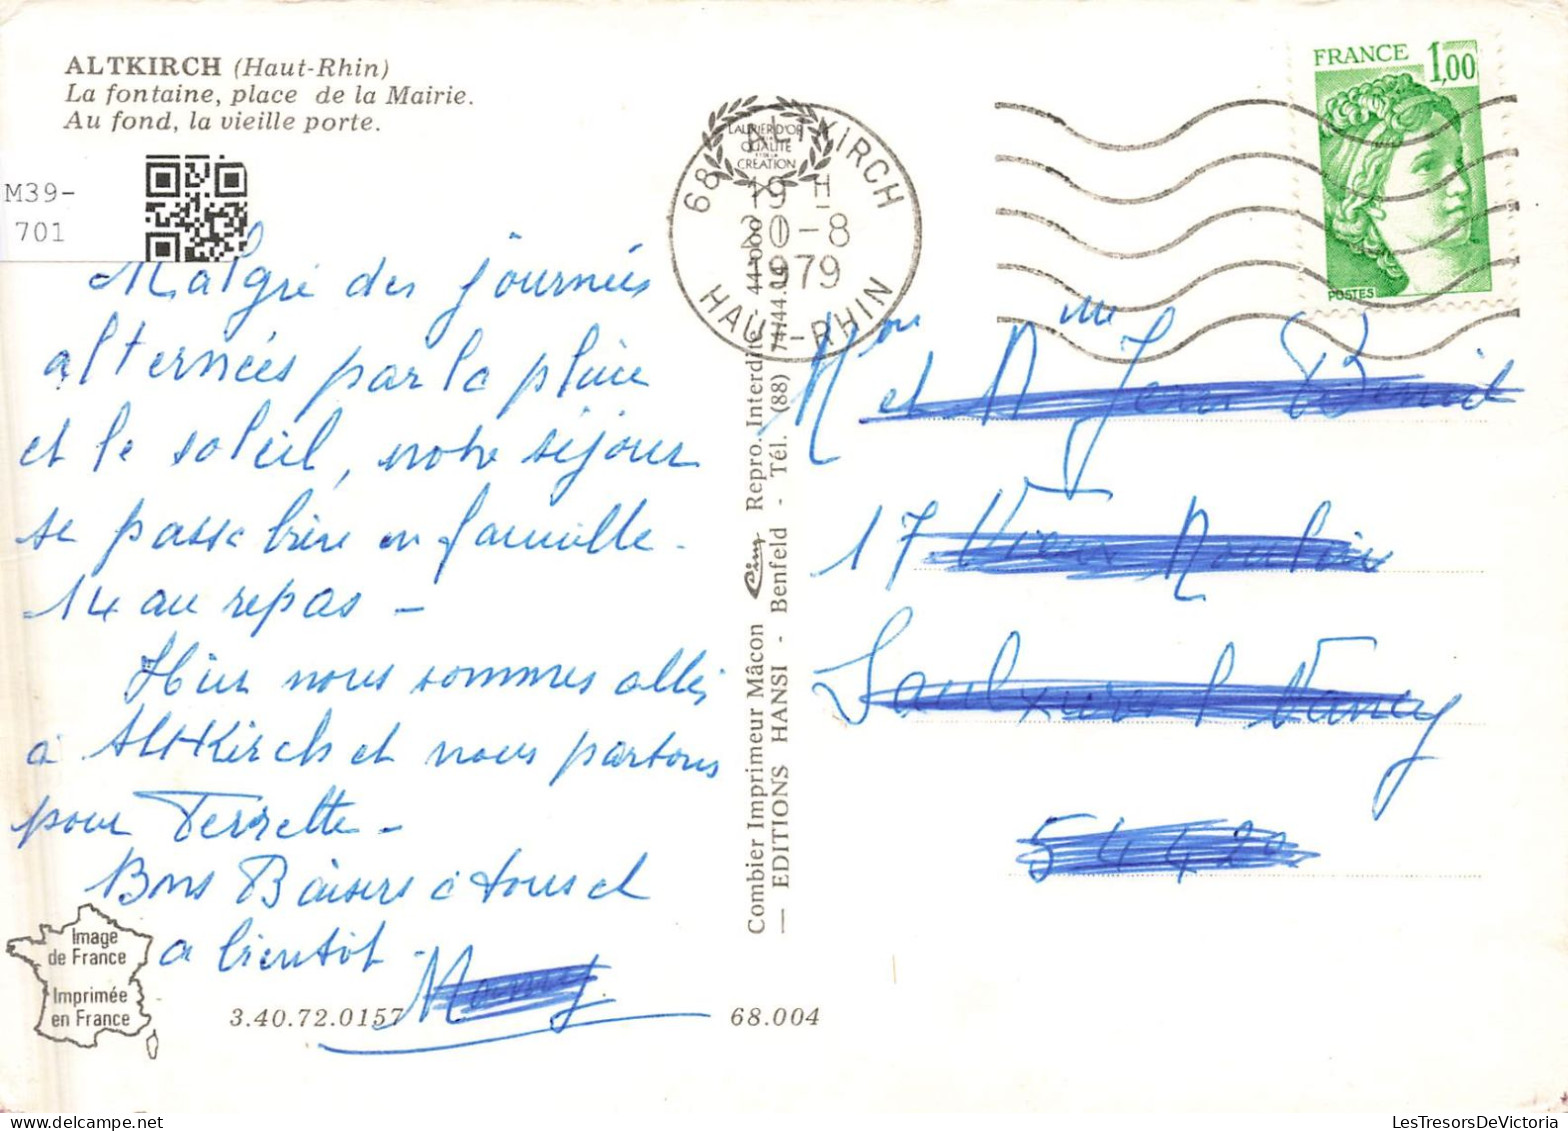 ALTKIRCH (Haut-Rhin)
La fontaine, place de la Mairie.
Au fond, la vieille porte.
M39-
701
Malgré des journées
alternées par la pluie
et le soleil, notre séjour
se passe bien en famille.
14 au repas -
Hier nous sommes allés
à Altkirch et nous partons
pour Ferrette -
Bons Baisers à tous et
a bientôt -
Image
de France
Imprimée
en France
3.40.72.0157
68.004
Combier Imprimeur Mâcon Cim Repro. Interdite
— EDITIONS HANSI - Benfeld - Tél. (88) 74.44.00
LAURIER D'OR
QUALITÉ
CRÉATION
68 ALTKIRCH
19 H
20-8
1979
HAUT-RHIN
FRANCE 1,00
POSTES
et
17
LesTresorsDeVictoria.com